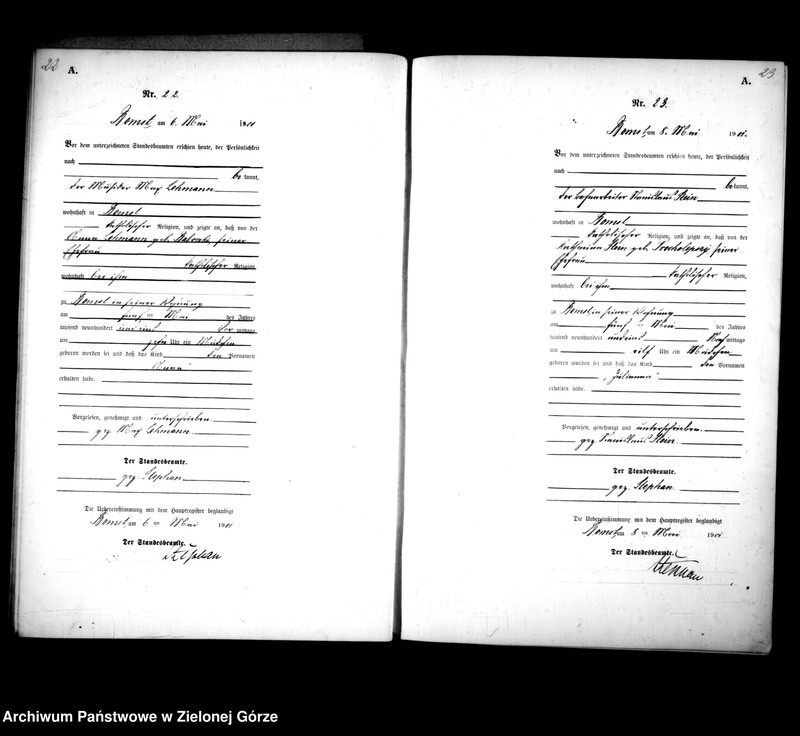 22
A.
Nr. 22.
Bomst, am 6. Mai 1901
Vor dem unterzeichneten Standesbeamten erschien heute, der Persönlichkeit
nach
be kannt,
der Musiker Max Lehmann
wohnhaft in Bomst
katholischer Religion, und zeigte an, daß von der
Anna Lehmann geb. seiner
Ehefrau
katholischer Religion
wohnhaft bei ihm
zu Bomst in seiner Wohnung
am fünf ten Mai des Jahres
tausend neunhundert und eins Vor mittags
um zehn Uhr ein Mädchen
geboren worden sei und daß das Kind den Vornamen
Anna
erhalten habe.
Vorgelesen, genehmigt und unterschrieben
gez. Max Lehmann
Der Standesbeamte.
gez. Stephan
Die Uebereinstimmung mit dem Hauptregister beglaubigt
Bomst, am 6 ten Mai 1901
Der Standesbeamte.
Stephan
23
A.
Nr. 23.
Bomst, am 8. Mai 1901.
Vor dem unterzeichneten Standesbeamten erschien heute, der Persönlichkeit
nach
be kannt,
der Stanislaus Klein
wohnhaft in Bomst
katholischer Religion, und zeigte an, daß von der
Katharina Klein geb. seiner
Ehefrau
katholischer Religion,
wohnhaft bei ihm
zu Bomst in seiner Wohnung
am fünf ten Mai des Jahres
tausend neunhundert und eins Nach mittags
um eilf Uhr ein Mädchen
geboren worden sei und daß das Kind den Vornamen
„Julianna“
erhalten habe.
Vorgelesen, genehmigt und unterschrieben.
gez. Stanislaus Klein
Der Standesbeamte.
gez. Stephan
Die Uebereinstimmung mit dem Hauptregister beglaubigt
Bomst, am 8 ten Mai 1901
Der Standesbeamte.
Stephan
Archiwum Państwowe w Zielonej Górze